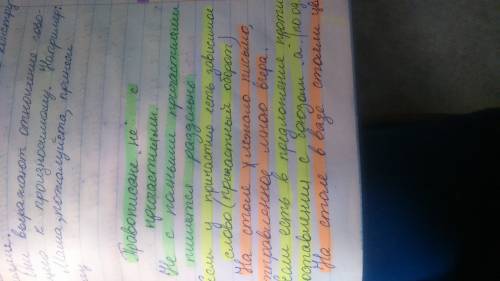 выражают отношение гово-
к произносимому. Например:
Мама, пожалуйста, принеси
Правописание не с
причастиями.
Не с полными причастиями
пишется раздельно
если у причастия есть зависимое
слово (причастный оборот)
На столе лежало письмо,
отправленное мною вчера.
если есть в предложении против
На столе в вазе стояли